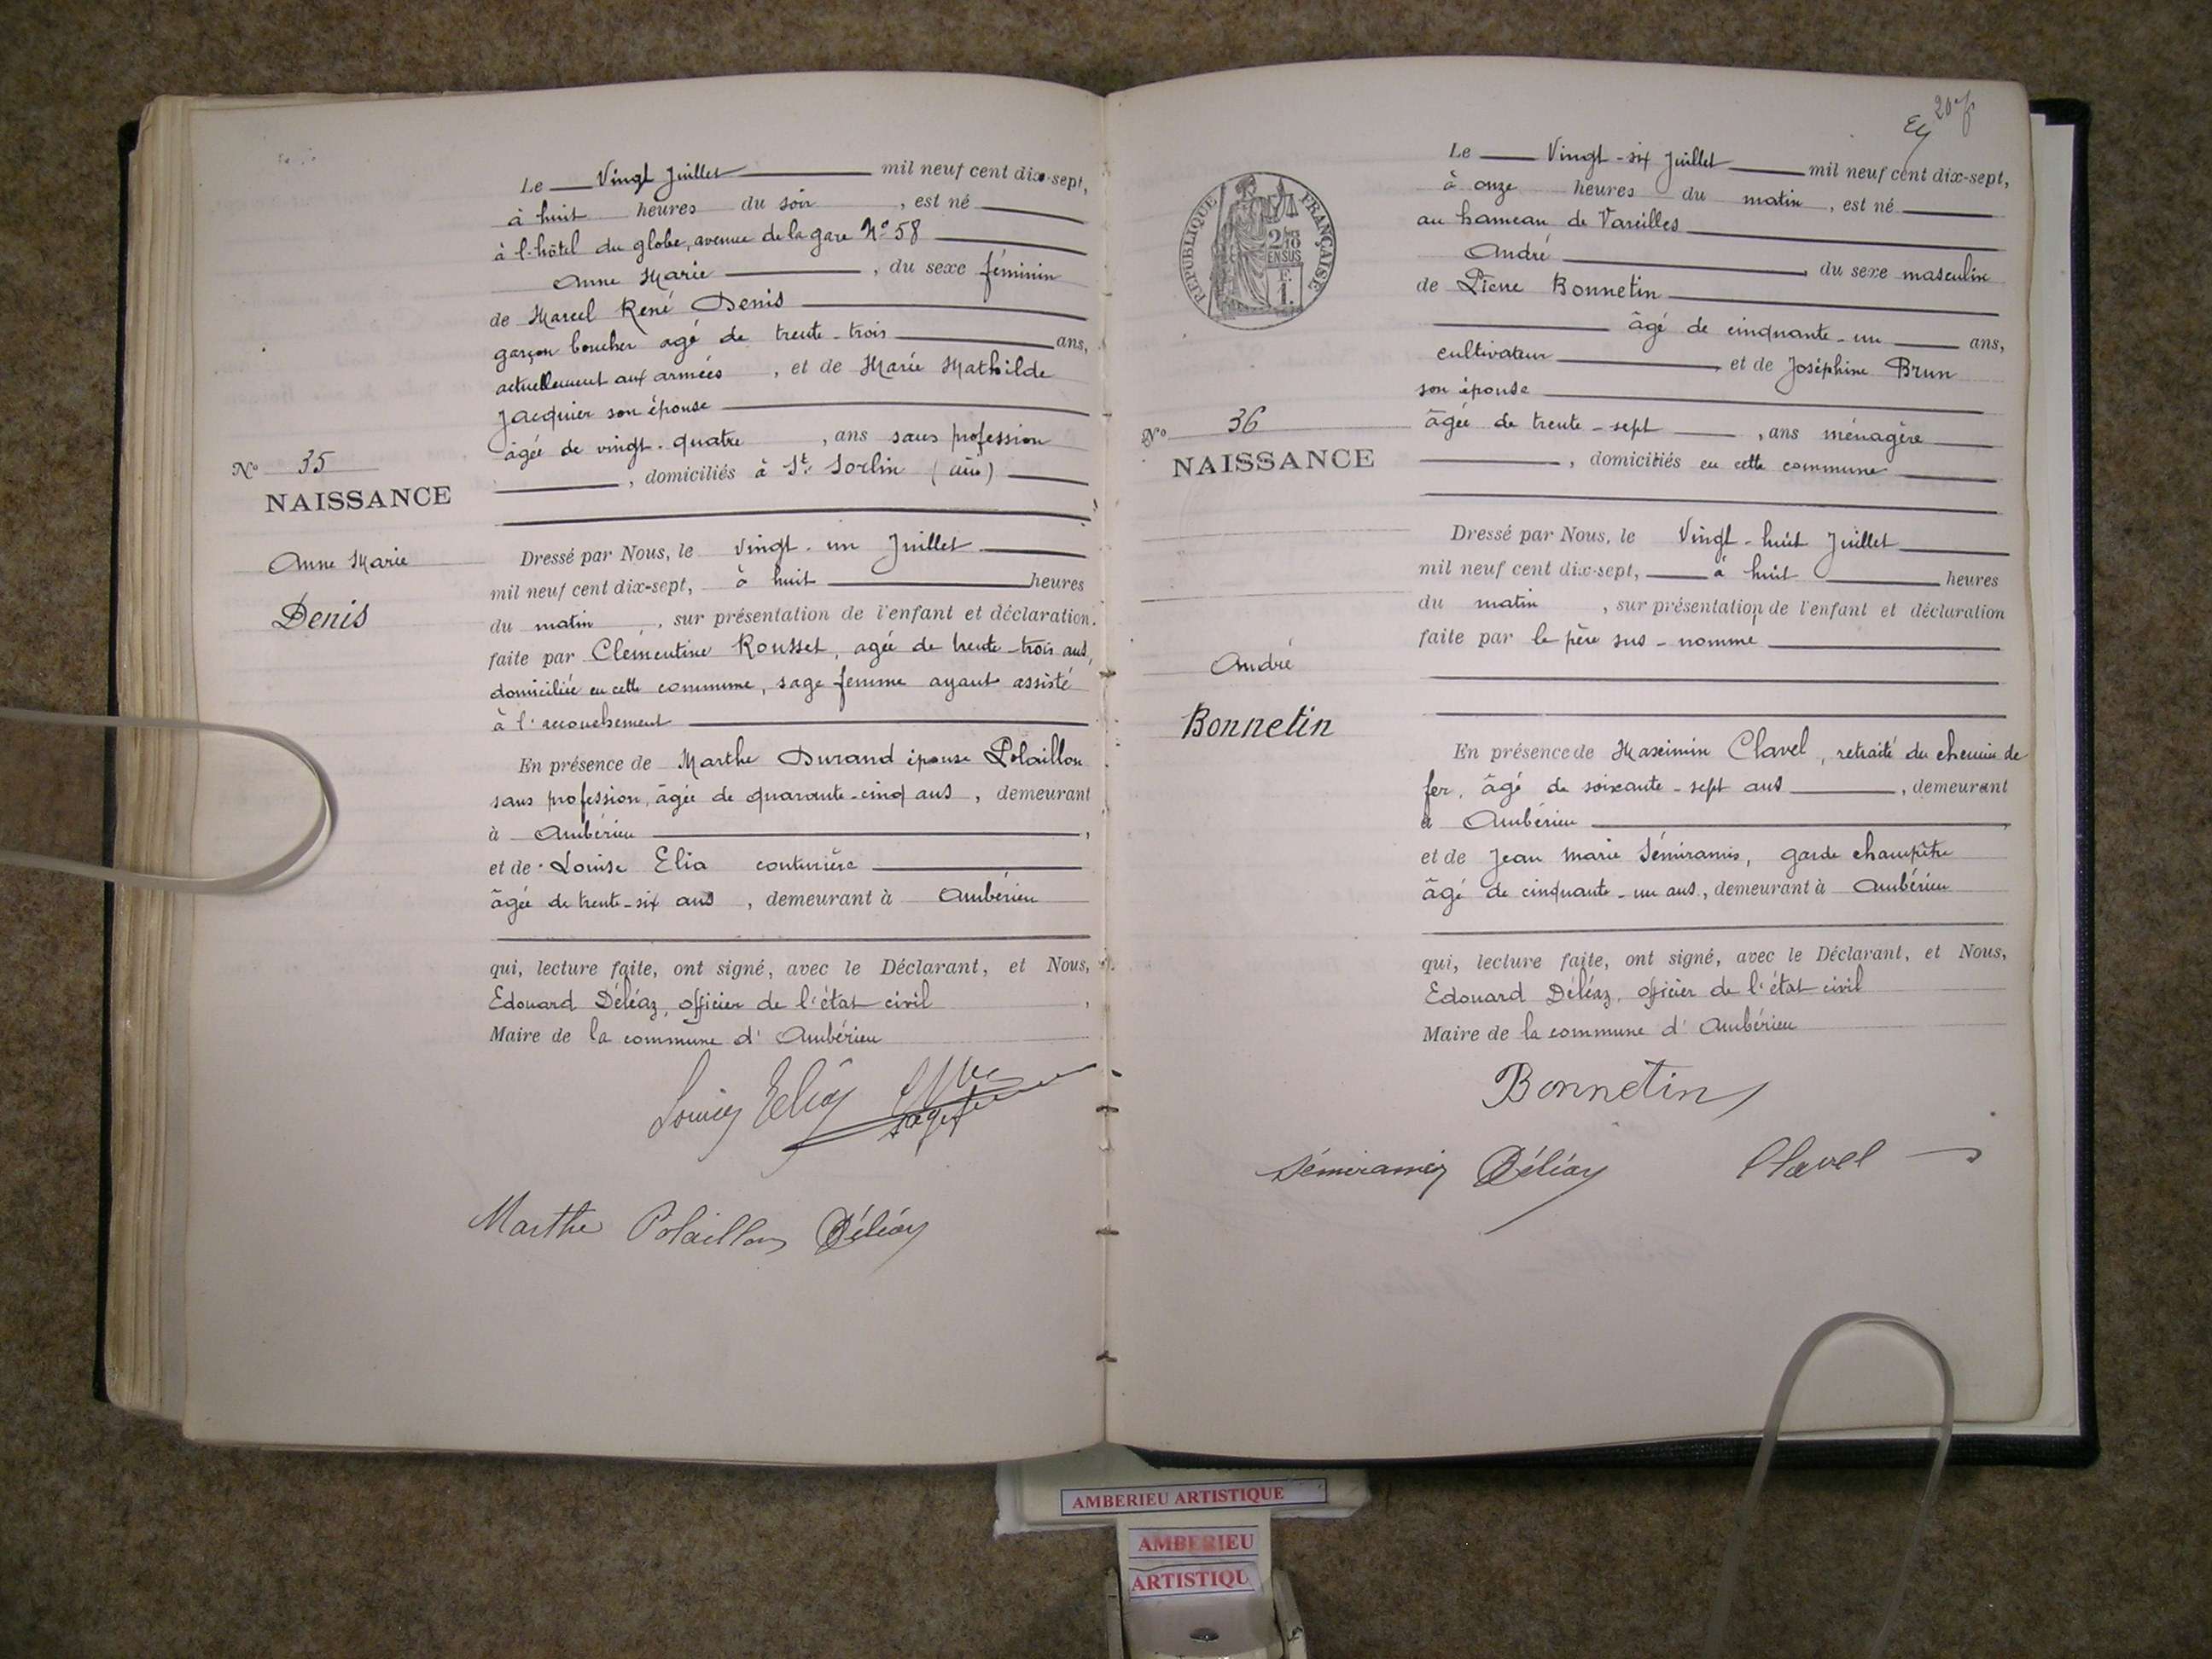 Le Vingt Juillet mil neuf cent dix-sept,
à huit heures du soir, est né
à l'hôtel du globe, avenue de la gare N° 58
Anne Marie, du sexe féminin
de Marcel René Denis
garçon boucher agé de trente-trois ans,
actuellement aux armées, et de Marie Mathilde
Jacquier son épouse
âgée de vingt-quatre, ans sans profession
, domiciliés à St. Sorlin (ain)
N° 35
NAISSANCE
Anne Marie
Denis
Dressé par Nous, le vingt-un Juillet
mil neuf cent dix-sept, à huit heures
du matin, sur présentation de l'enfant et déclaration
faite par Clémentine Rousset, agée de trente-trois ans,
domiciliée en cette commune, sage femme ayant assisté
à l'accouchement
En présence de Marthe Durand épouse Polaillon
sans profession, âgée de quarante-cinq ans, demeurant
à Ambérieu,
et de Louise Elia couturière
âgée de trente-six ans, demeurant à Ambérieu
qui, lecture faite, ont signé, avec le Déclarant, et Nous,
Edouard Déléaz, officier de l'état civil,
Maire de la commune d'Ambérieu
Louise Elia
Marthe Polaillon Déléaz
20
RÉPUBLIQUE FRANÇAISE
2/10
EN SUS
F.
1.
Le Vingt-six Juillet mil neuf cent dix-sept,
à onze heures du matin, est né
au hameau de Vareilles
André, du sexe masculin
de Pierre Bonnetin
âgé de cinquante-un ans,
cultivateur, et de Joséphine Brun
son épouse
âgée de trente-sept, ans ménagère
, domiciliés en cette commune
N° 36
NAISSANCE
André
Bonnetin
Dressé par Nous, le Vingt-huit Juillet
mil neuf cent dix-sept, à huit heures
du matin, sur présentation de l'enfant et déclaration
faite par le père sus-nommé
En présence de Maximin Clavel, retraité du chemin de
fer, âgé de soixante-sept ans, demeurant
à Ambérieu,
et de Jean Marie Sémiramis, garde champêtre
âgé de cinquante-un ans, demeurant à Ambérieu
qui, lecture faite, ont signé, avec le Déclarant, et Nous,
Edouard Déléaz, officier de l'état civil
Maire de la commune d'Ambérieu
Bonnetin
Sémiramis Déléaz Clavel
AMBERIEU ARTISTIQUE
AMBERIEU
ARTISTIQU